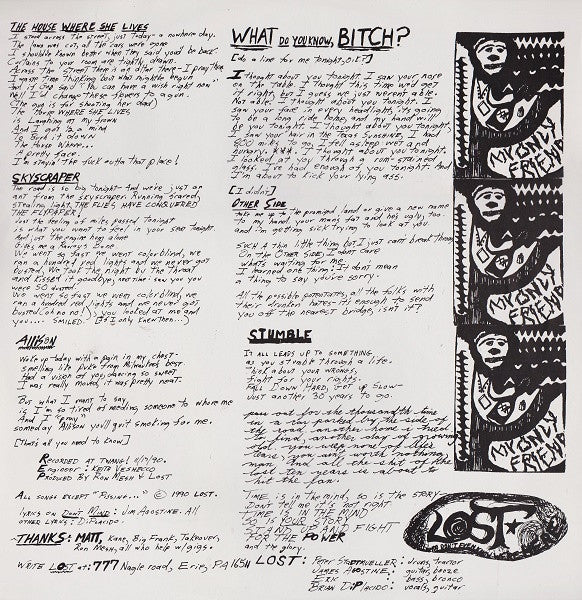 THE HOUSE WHERE SHE LIVES
I stood across the street, just today - a nowhere day.
The lawn was cut, all the cars were gone
I should've known better when they said you'd be back
Curtains to your room are tightly drawn.
Across the street then an altar there - I pray there
I waste time thinking but who might've begun
And if God said "You can have a wish right now"
Well I'd change these flowers to a gun.
(The gun is for shooting her dead)
The House WHERE SHE LIVES
is Laughing at my frown
And I got ½ a mind
to burn it down
The House Where...
is pretty face.
I'm stayin' the fuck outta that place!
SKYSCRAPER
The road is so big tonight and we're just an
ant from the skyscraper. Running scared,
stealing light, THE FLIES HAVE CONQUERED
THE FLYPAPER!
And the feeling of miles passed tonight
is what you want to feel in your seat tonight
And just the engine hung alone
Gives me a
We went so fast we went colorblind, we
ran a hundred red lights and we never got
busted. We took the night by the throat
and kissed it goodbye, next time I saw you you
were SO
We went so fast we were colorblind, we
ran a hundred red lights and we never got
busted (oh no no!), you looked at me and
you.... SMILED. (If I only knew then...)
Allison
Woke up today with a pain in my chest -
smelling like puke from Milwaukee's best.
Had a vision of you, dancing so sweet
I was really moved, it was pretty neat.
But what I want to say,
is I'm so tired of needing, someone to whore me
And I "pray"
someday Allison you'll quit smoking for me.
[That's all you need to know]
RECORDED AT TWANG! 11/17/90.
Engineer: KEITH VESHECCO
PRODUCED BY RON MESH & LOST
ALL SONGS EXCEPT "FUSING..." © 1990 LOST.
LYRICS ON DON'T MIND: JIM AGOSTINE. All
OTHER LYRICS: DiPLACIDO.
THANKS: MATT, Kane, Big Frank, Takeover,
Ron Mesh, all who help w/ gigs.
WRITE LOST AT: 777 Nagle road, Erie, PA 16511
WHAT DO YOU KNOW, BITCH?
[do a line for me tonight, O.K.?]
I thought about you tonight. I saw your nose
on the table. I thought this time we'd get
it right, but I guess we just weren't able.
Not able. I thought about you tonight. I
saw your face in every headlight, it's going
to be a long ride home, and my hand will
be you tonight. I thought about you tonight,
I saw your hair in the Texas Sunshine. I had
800 miles to go, I fell asleep wet and
hungry. I thought about you tonight.
I looked at you through a rum-stained
glass. I've had enough of you tonight. And
I'm about to kick your lying ass.
[I didn't]
OTHER SIDE
Take me up to the promised land or give a new name
to my hand, your man's fat and he's ugly too.
and I'm getting sick trying to look at you
SUCH A thin little thing but I just can't break through
On the OTHER SIDE, I don't care
what's waiting for me.
I learned one thing: It don't mean
a thing to say you're sorry.
All the possible penetrates, all the folks with
their franken hairs - it's enough to send
you off the nearest bridge, isn't it?
STUMBLE
IT ALL LEADS UP TO SOMETHING,
as you stumble through a life.
Think about your WRONGS,
fight for your rights.
FALL DOWN HARD, GET up Slow -
Just another 30 years to go.
pass out for the thousandth time
in a car parked by the side of
the road, another home is hard
to find, another day of
old. You will none of this
tears, you ain't worth nothing,
man. And all the shit of the
last ten years is about to
hit the fan.
TIME is in the mind, so is the story
DON'T tell me it's not right
TIME IS IN THE MIND
SO IS YOUR STORY
STAND UP AND FIGHT
FOR THE POWER
and the glory.
LOST: PETER STADTMUELLER: drums, tractor
JAMES AGOSTINE: guitar, booze
ERIK: bass, bronco
BRIAN DiPLACIDO: vocals, guitar
MY ONLY
FRIEND
MY ONLY
FRIEND
MY ONLY
FRIEND
LOST